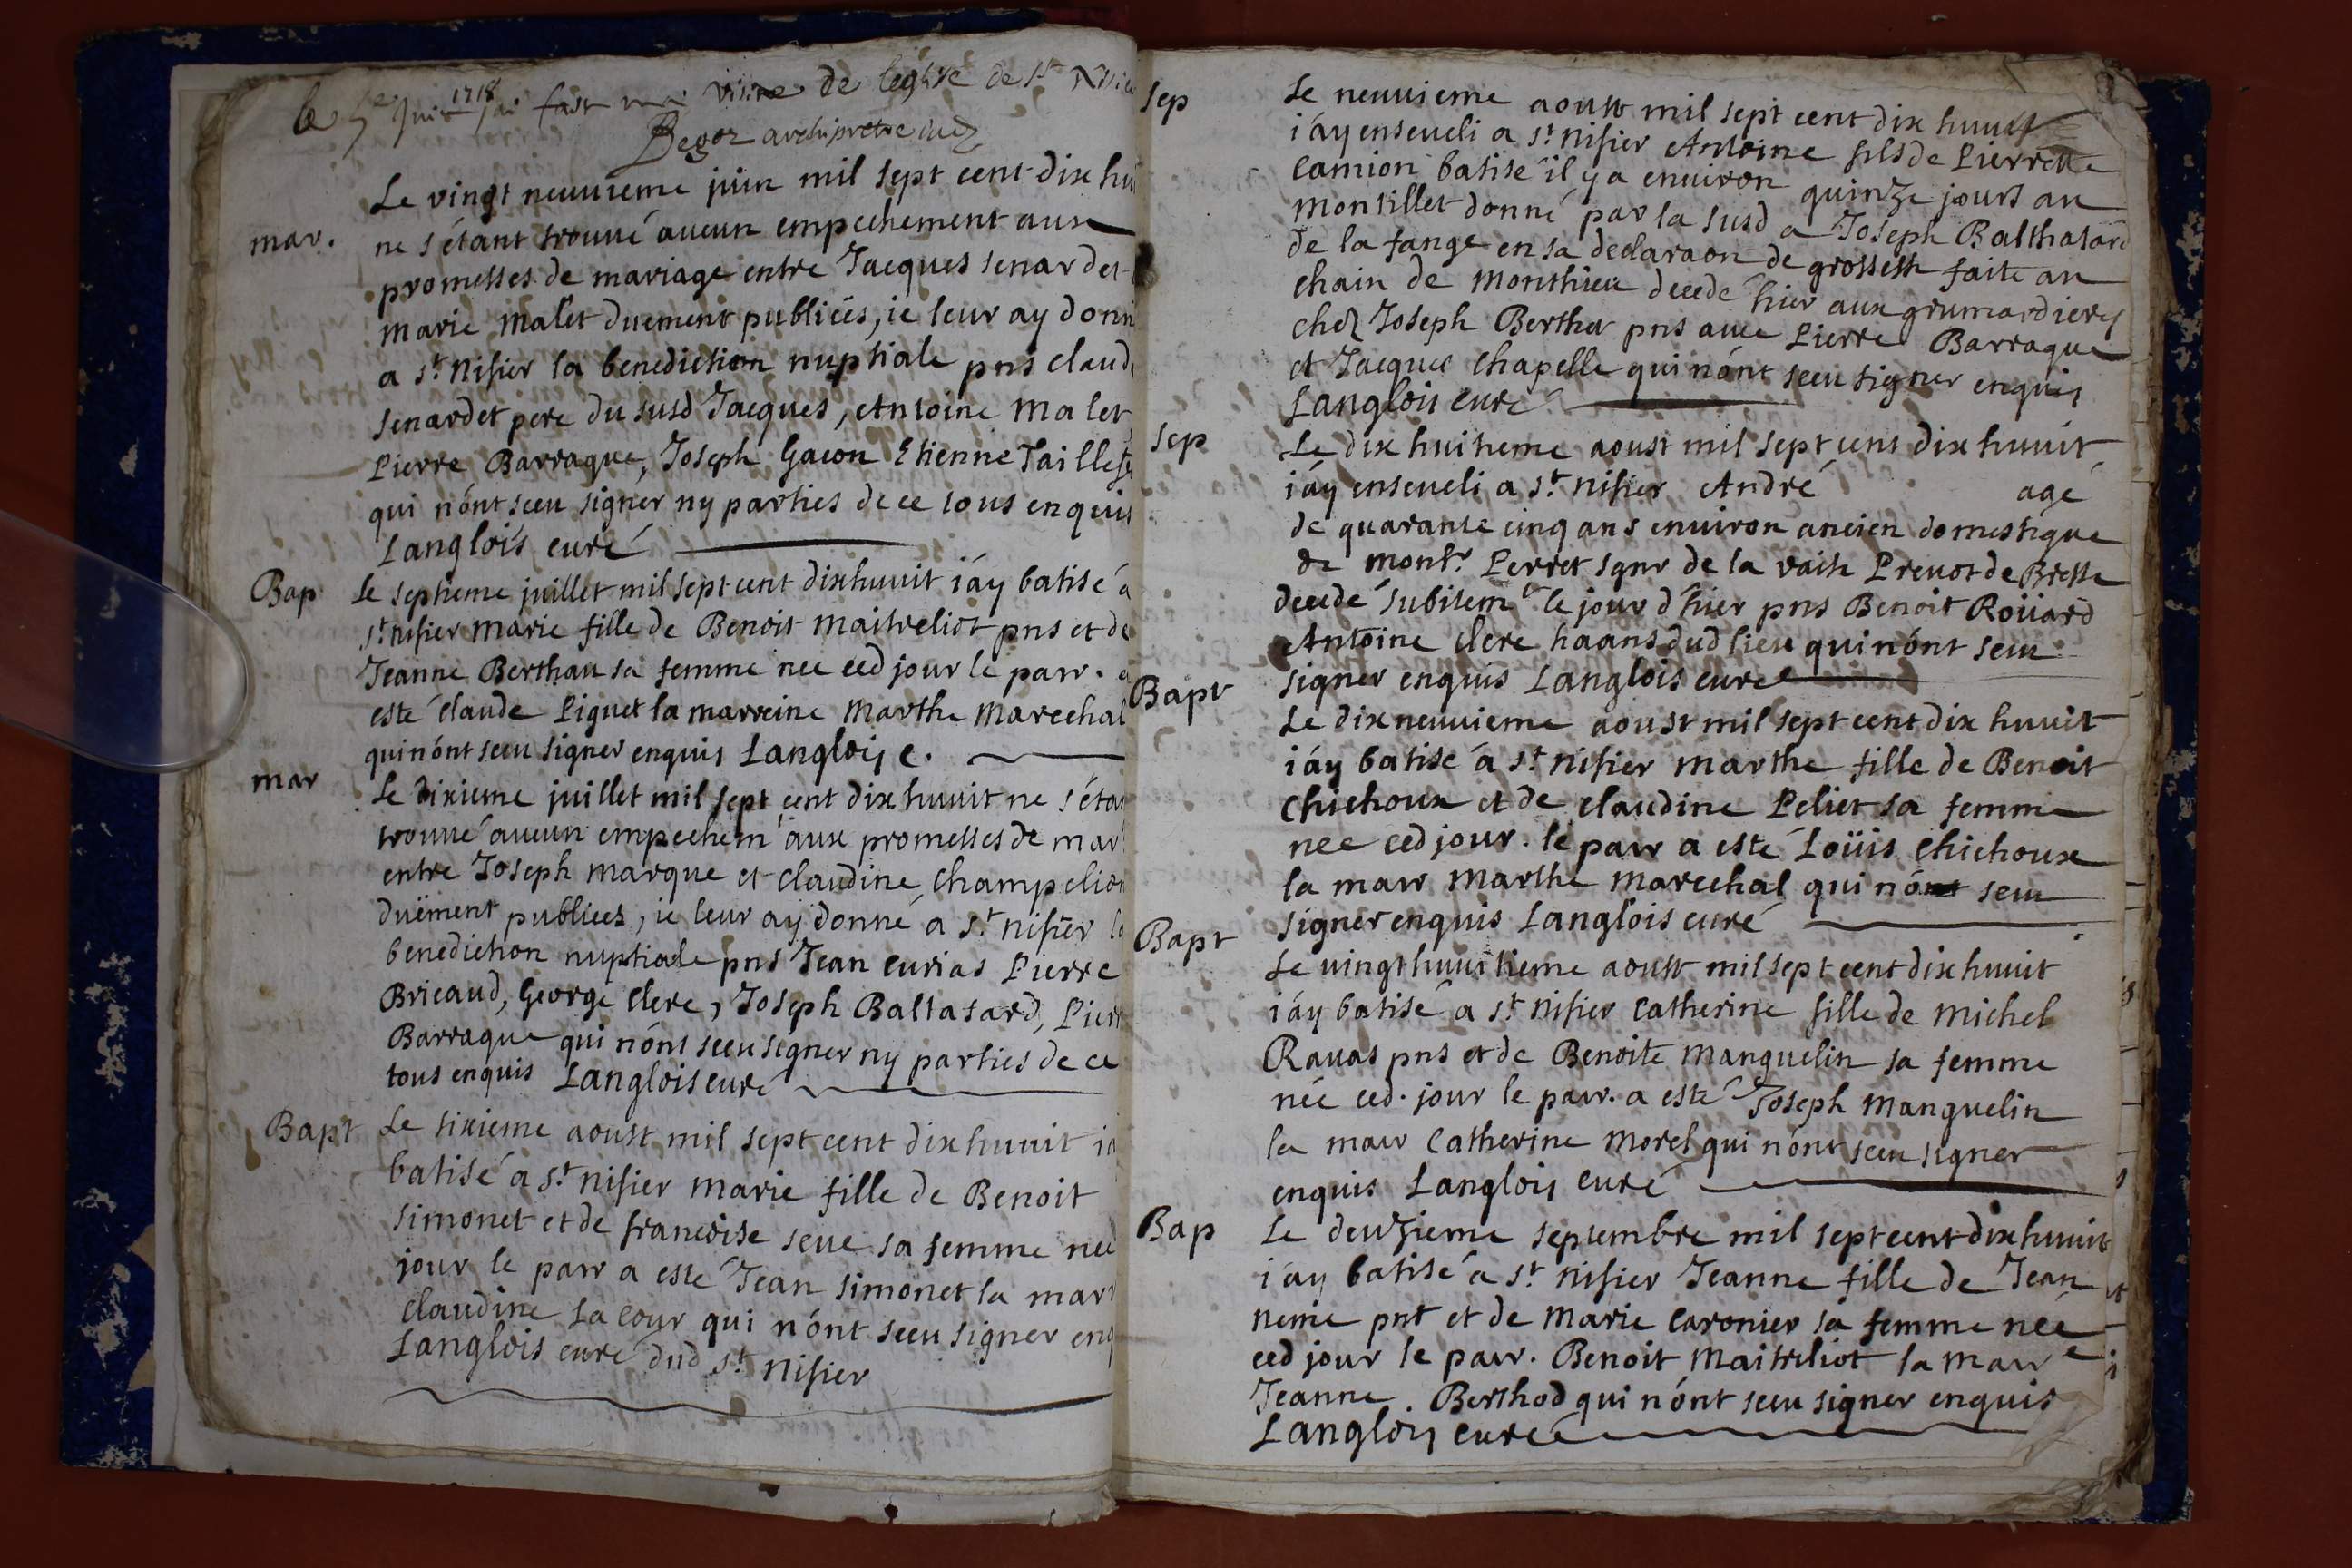 le 5e Juin 1718 jai fait ma visite de leglise de st Nisie
Begoz archipretre
Le vingt neuuieme juin mil sept cent dix hui
mar.
ne s'étant trouué aucun empechement aux
promesses de mariage entre Jacques senardet
marie malet duement publiées, ie leur ay donn
a st. nisier la benediction nuptiale pns claude
senardet pere du susd Jacques, Antoine malet
Pierre Barraque, Joseph Gacon Etienne Taille
qui n'ont sceu signer ny parties de ce tous enquis
Langlois curé
Bap
Le septieme juillet mil sept cent dixhuuit i'ay batisé a
st. nisier marie fille de Benoit maitreliot pns et de
Jeanne Berthau sa femme nee ced jour le parr. a
esté claude Piguet la marreine marthe marechal
qui n'ont sceu signer enquis Langlois c.
mar
Le dixieme juillet mil sept cent dix huuit ne s'étan
trouué aucun empechem aux promesses de mar
entre Joseph marque et claudine champelion
duëment publiees, ie leur ay donné a st. nisier la
benediction nuptiale pns Jean curias Pierre
Bricaud, George clere, Joseph Baltasard, Pierr
Barraque qui n'ont sceu signer ny parties de ce
tous enquis Langlois curé
Bapt
Le sixieme aoust mil sept cent dixhuuit ia
batisé a st. nisier marie fille de Benoit
simonet et de francoise seue sa femme nee
jour le parr a esté Jean simonet la marr
claudine la cour qui n'ont sceu signer enq
Langlois curé dud st. nisier
sep
Le neuuieme aoust mil sept cent dix huuit
i'ay enseueli a st. nisier Antoine fils de Pierrette
camion batisé il y a enuiron quinze jours au
montillet donné par la susd a Joseph Balthasard
de la fange en sa declaraon de grossesse faite au
chain de monthieu decedé hier aux grumardieres
chez Joseph Berthet pns auec Pierre Barraque
et Jacques chapelle qui n'ont sceu signer enquis
Langlois curé
sep
Le dix huitieme aoust mil sept cent dix huuit
i'ay enseueli a st. nisier André age
de quarante cinq ans enuiron ancien domestique
de monsr. Perret sgnr de la vaise Preuot de Bresse
decedé subitemt le jour d'hier pns Benoit Roüard
Antoine clere haans dud lieu qui n'ont sceu
signer enquis Langlois curé
Bapt
Le dixneuuieme aoust mil sept cent dix huuit
i'ay batisé á st. nisier marthe fille de Benoit
chichoux et de claudine Peliet sa femme
nee ced jour. le parr a esté Loüis chichoux
la marr marthe marechal qui n'ont sceu
signer enquis Langlois curé
Bapt
Le uingthuuitieme aoust mil sept cent dix huuit
i'ay batisé a st. nisier catherine fille de michel
Rauas pns et de Benoite manguelin sa femme
née ced. jour le parr. a esté Joseph manguelin
la marr catherine morel qui n'ont sceu signer
enquis Langlois curé
Bap
Le deuzieme septembre mil sept cent dix huuit
i'ay batisé a st. nisier Jeanne fille de Jean
neme pnt et de marie caronier sa femme née
ced jour le parr. Benoit maitreliot la marre
Jeanne. Berthod qui n'ont sceu signer enquis
Langlois curé